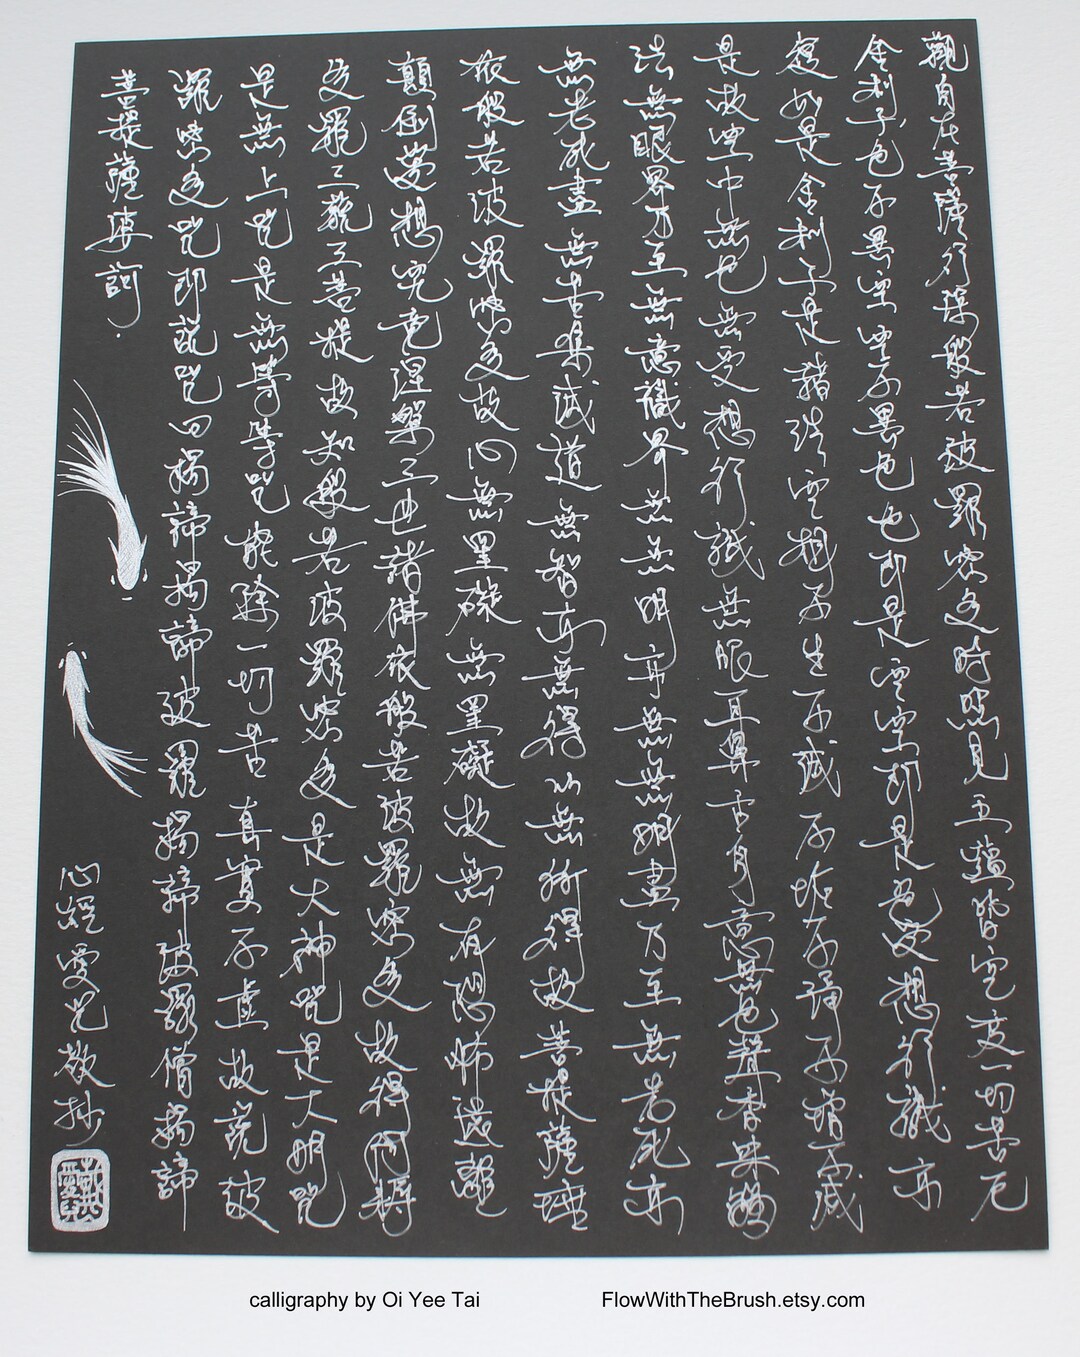 觀自在菩薩行深般若波羅密多時照見五蘊皆空度一切苦厄
舍利子色不異空空不異色色即是空空即是色受想行識亦
復如是舍利子是諸法空相不生不滅不垢不淨不增不減
是故空中無色無受想行識無眼耳鼻舌身意無色聲香味觸
法無眼界乃至無意識界無無明亦無無明盡乃至無老死亦
無老死盡無苦集滅道無智亦無得以無所得故菩提薩埵
依般若波羅密多故心無罣礙無罣礙故無有恐怖遠離
顛倒夢想究竟涅槃三世諸佛依般若波羅密多故得阿耨
多羅三藐三菩提故知般若波羅密多是大神咒是大明咒
是無上咒是無等等咒能除一切苦真實不虛故說波
羅密多咒即說咒曰揭諦揭諦波羅揭諦波羅僧揭諦
菩提薩婆訶
心經愛兒敬抄
calligraphy by Oi Yee Tai
FlowWithTheBrush.etsy.com